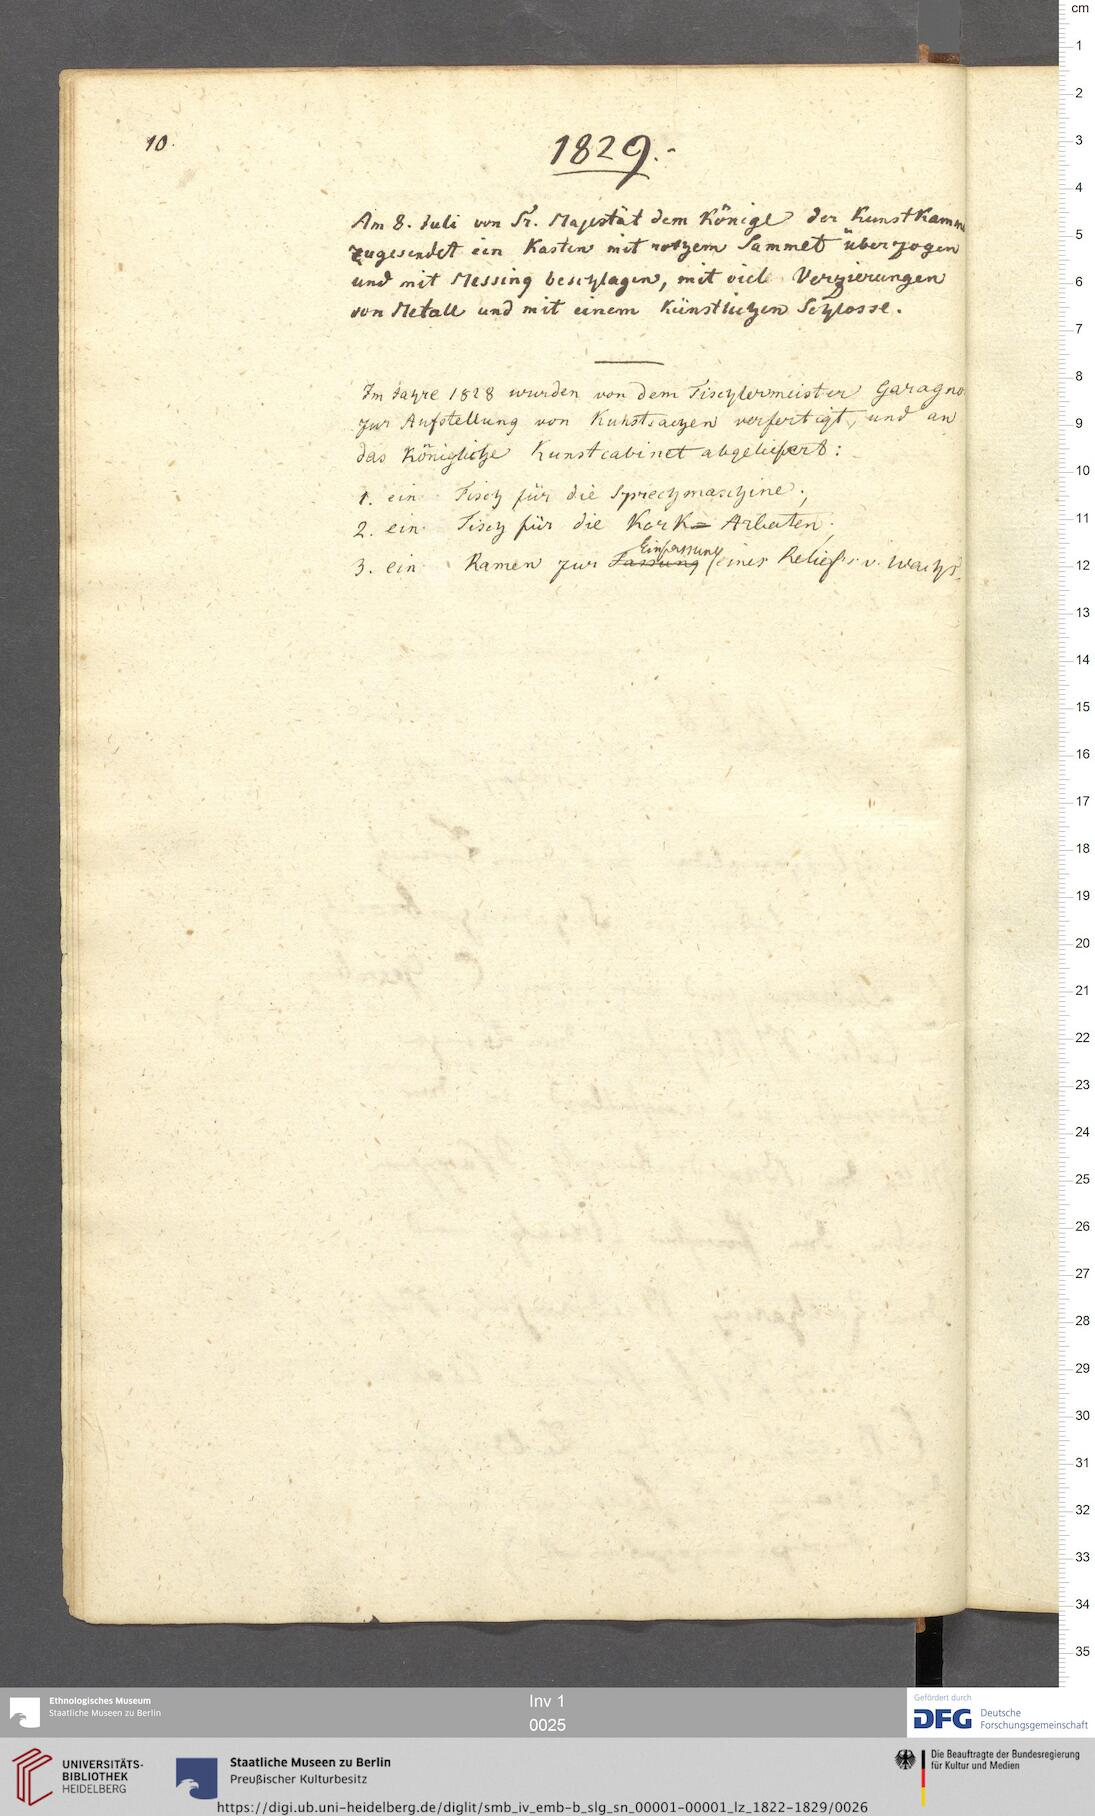 10.
1829.-
Am 8. Juli von Sr. Majestät dem Könige der Kunstkamm
zugesendet ein Kasten mit rothem Sammet überzogen
und mit Messing beschlagen, mit viele Verzierungen
von Metall und mit einem künstlichen Schlosse.
Im Jahre 1828 wurden von dem Tischlermeister Garagno
zur Aufstellung von Kunstsachen verfertigt, und an
das Königliche Kunstcabinet abgeliefert:
1. ein Tisch für die Sprechmaschine;
2. ein Tisch für die Kork= Arbeiten;
Einfassung
3. ein Ramen zur Fassung eines Reliefs v. Wachs.
cm
1
2
3
4
5
6
7
8
9
10
11
12
13
14
15
16
17
18
19
20
21
22
23
24
25
26
27
28
29
30
31
32
33
34
35
Ethnologisches Museum
Staatliche Museen zu Berlin
Inv 1
0025
Gefördert durch
DFG Deutsche
Forschungsgemeinschaft
UNIVERSITÄTS-
BIBLIOTHEK
HEIDELBERG
Staatliche Museen zu Berlin
Preußischer Kulturbesitz
Die Beauftragte der Bundesregierung
für Kultur und Medien
https://digi.ub.uni-heidelberg.de/diglit/smb_iv_emb-b_slg_sn_00001-00001_lz_1822-1829/0026